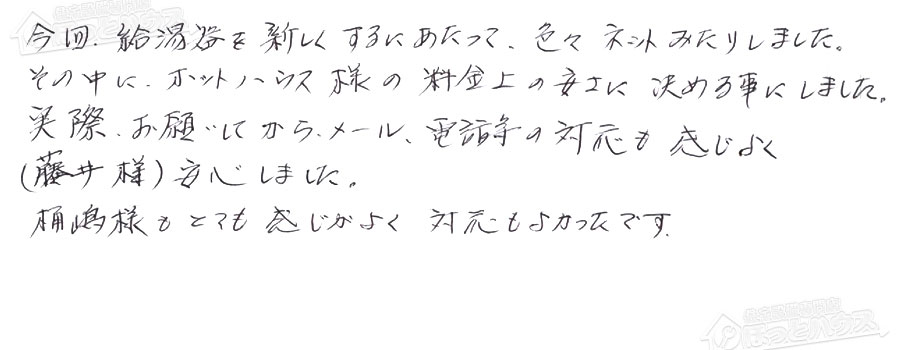 今回、給湯器を新しくするにあたって、色々ネットみたりしました。
その中に、ホットハウス様の料金上の安さに決める事にしました。
実際、お願いしてから、メール、電話等の対応も感じよく
(藤井様)安心しました。
桶嶋様もとても感じがよく対応もよかったです。
ほっとハウス